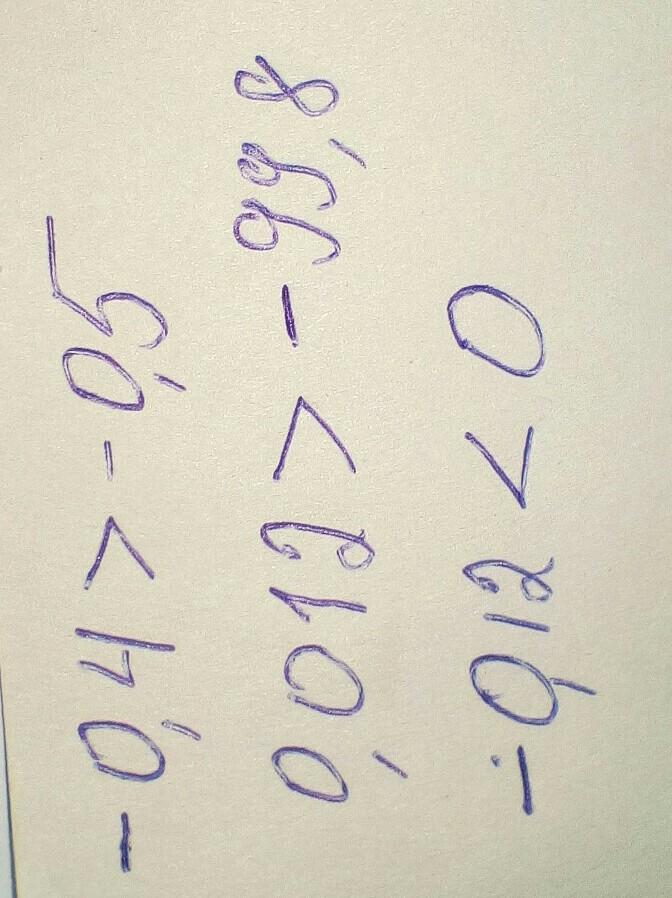 -0,4 > -0,5
0,012 > -99,8
-0,12 < 0